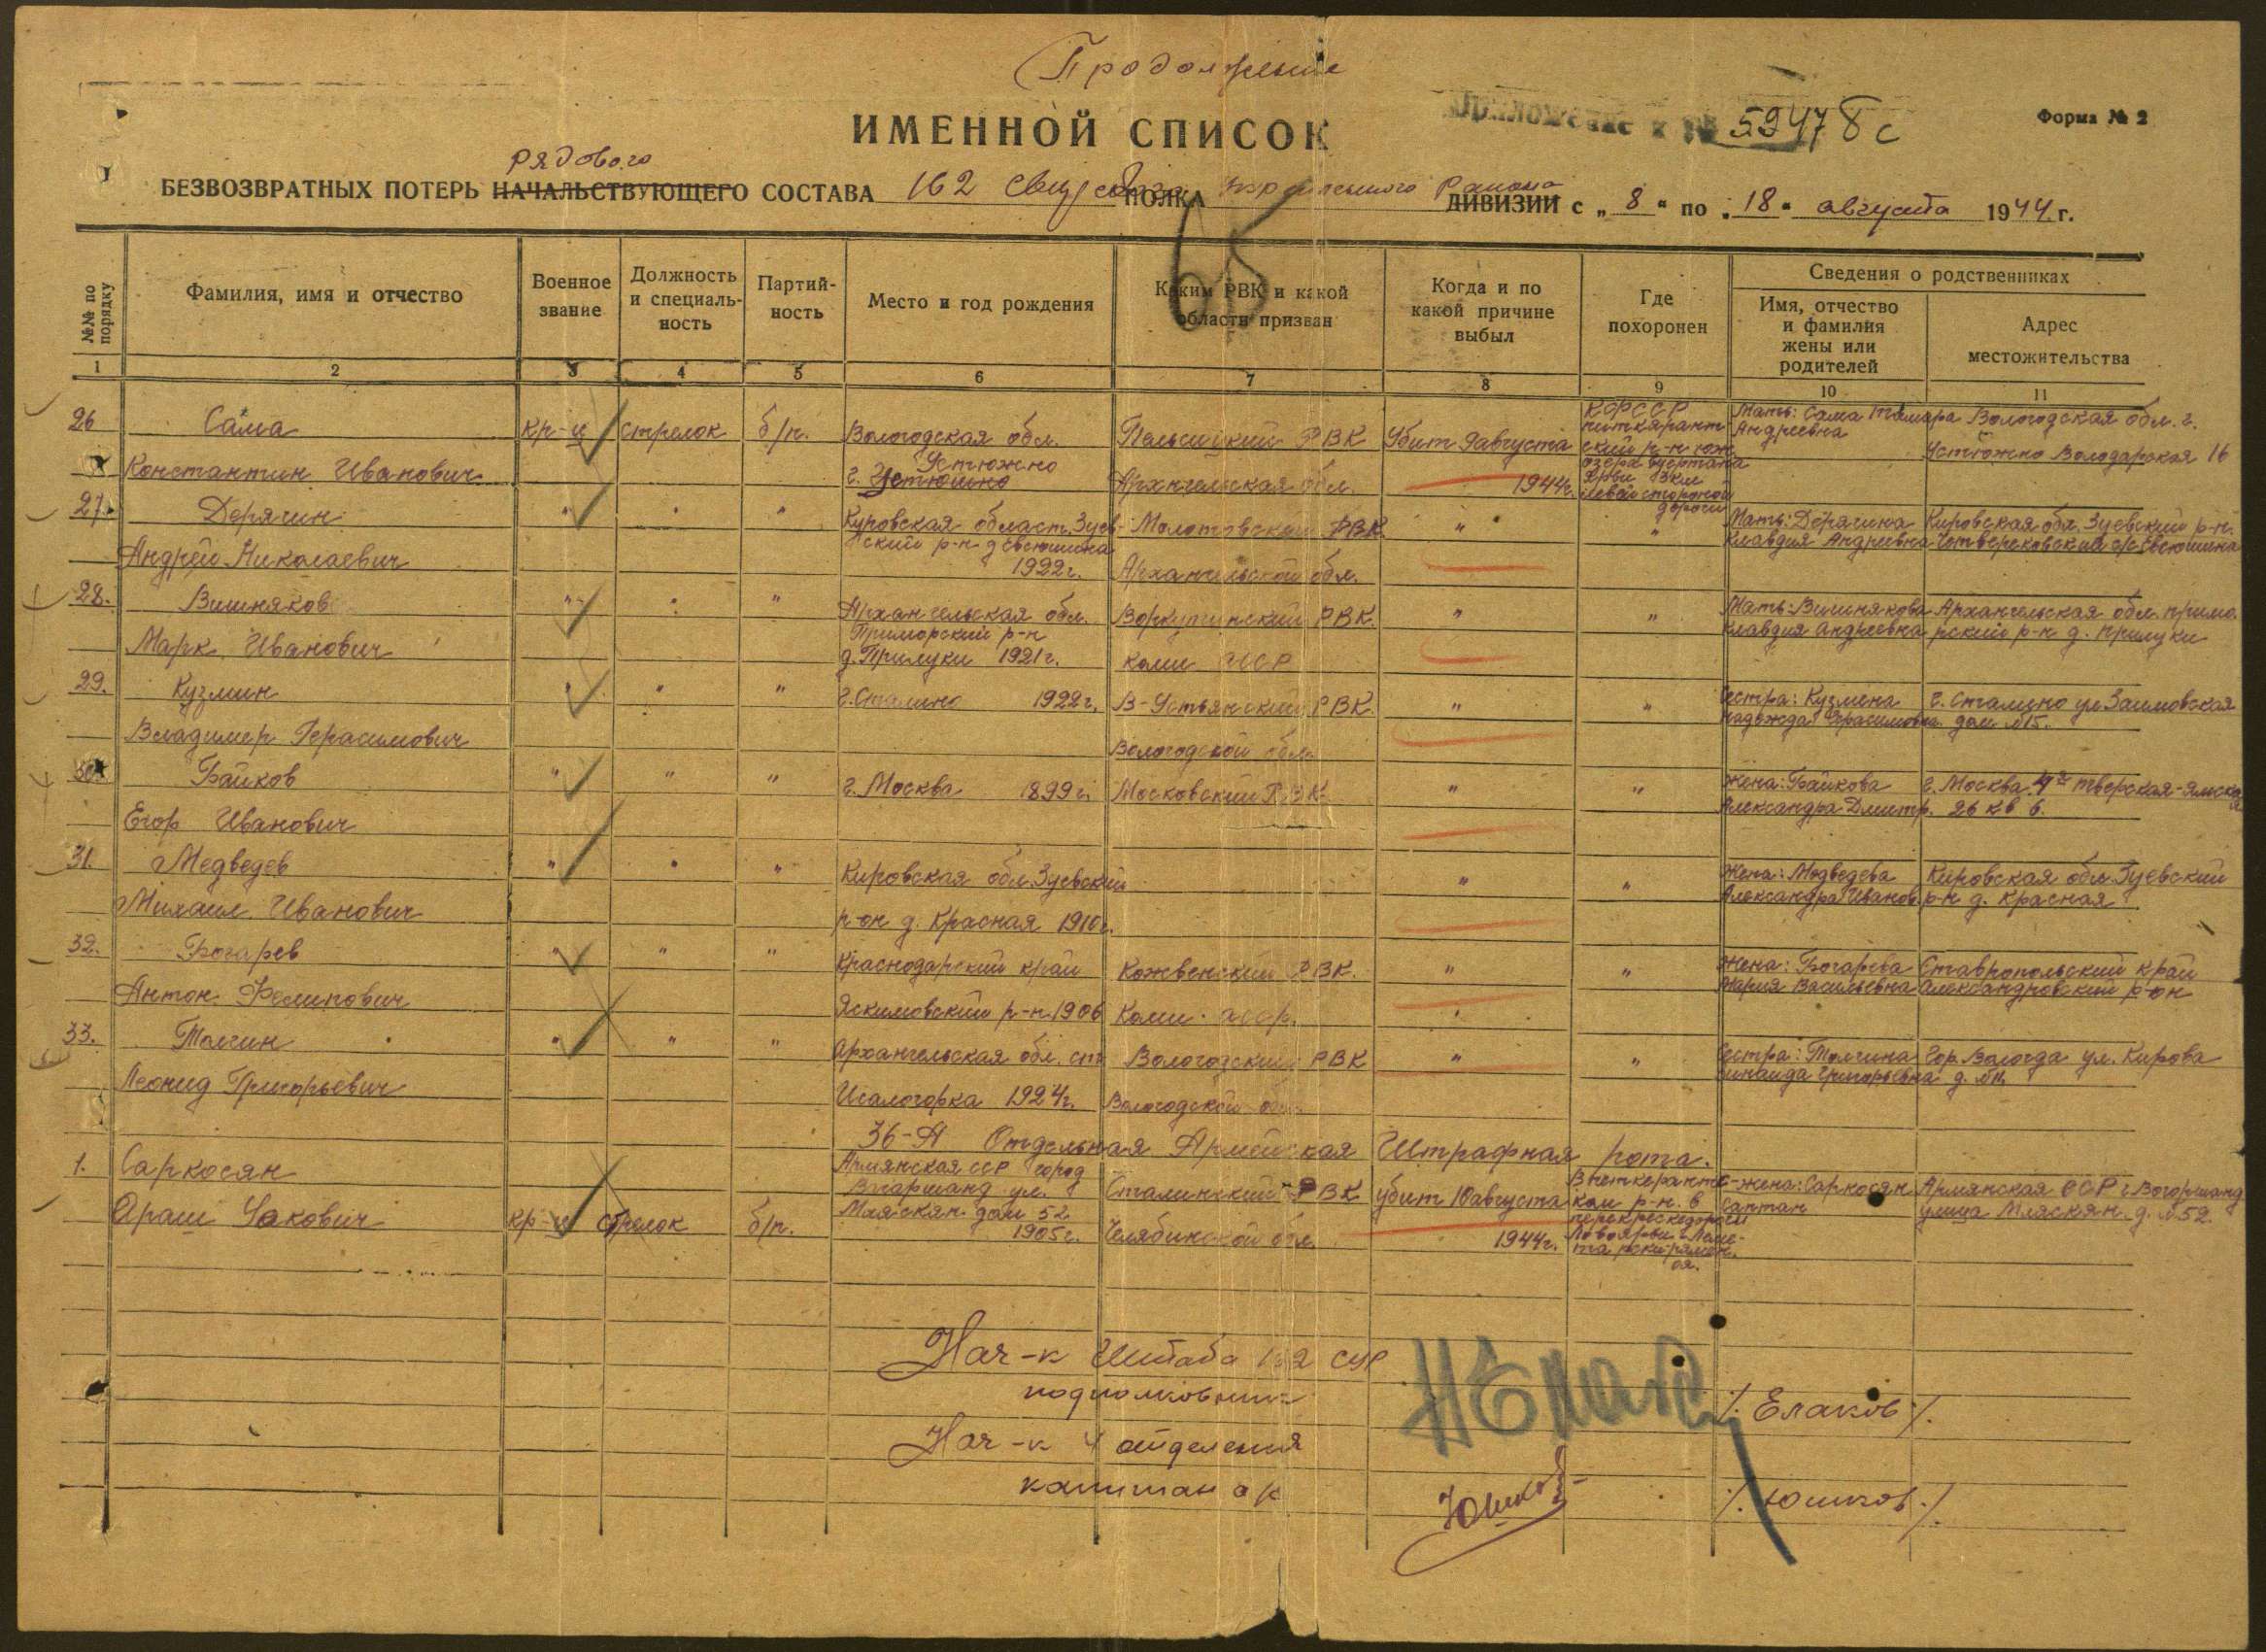 Продолжение
ИМЕННОЙ СПИСОК
Приложение к № 59478с
Форма № 2
рядового
БЕЗВОЗВРАТНЫХ ПОТЕРЬ НАЧАЛЬСТВУЮЩЕГО СОСТАВА 162 ПОЛКА района ДИВИЗИИ с „ 8 “ по „ 18 “ августа 1944 г.
65
№№ по порядку
Фамилия, имя и отчество
Военное звание
Должность и специаль-ность
Партий-ность
Место и год рождения
Каким РВК и какой области призван
Когда и по какой причине выбыл
Где похоронен
Сведения о родственниках
Имя, отчество и фамилия жены или родителей
Адрес местожительства
1 2 3 4 5 6 7 8 9 10 11
26 Сама кр-ц стрелок б/п. Вологодская обл. РВК Убит 9 августа КФССР питкярант Мать: Сама Тамара Вологодская обл. г.
Андреевна
ский р-н юж Устюжно Володарская 16
Константин Иванович г. Устюшно Устюжно Архангельская обл. 1944г. озера
ярви 3 км
левой стороной
дороги
27. Дерягин " " " Кировская област. Зуев- Молотовский РВК " " Мать: Дерягина Кировская обл. Зуевский р-н.
ский р-н д Евсюшина Клавдия Андреевна Четверековский с/с Евсюшина
Андрей Николаевич 1922г. Архангельской обл.
28. Вишняков " " " Архангельская обл. Воркутинский РВК. " " Мать: Вишнякова Архангельская обл. примо
Приморский р-н Клавдия Андреевна рский р-н д. прилуки
Марк Иванович д. Прилуки 1921г. Коми АССР
29. Кузмин " " " г. Сталино 1922г. В-Устьянский РВК. " " Сестра: Кузмина г. Сталино ул
Надежда Герасимовна дом №15.
Владимер Герасимович Вологодской обл.
30. Байков " " " г. Москва 1899г. Московский РВК " " Жена: Байкова г. Москва 4я тверская-Ямска
я
Александра Дмитр. 26 кв 6.
Егор Иванович
31. Медведев " " " Кировская обл. Зуевский " " Жена: Медведева Кировская обл. Зуевский
Александра Иванов. р-н д. Красная
Михаил Иванович р-он д. Красная 1910г.
32. Богарев " " " Краснодарский край Кожвенский РВК. " " Жена: Богарева Ставропольский край
Мария Васильевна Александровский р-он
Антон Фелипович р-н 1906 Коми АССР.
33. Толгин " " " Архангельская обл. ст Вологодский РВК " " Сестра: Толгина Гор. Вологда ул. Кирова
Зинаида Григорьевна
Леонид Григорьевич Исакогорка 1924г. Вологодской обл.
36-я Отдельная Армейская Штрафная рота.
1. Саркосян Армянская ССР город Сталинский РВК убит 10 августа жена: Саркосян Армянская ССР г Вогоршанд
Араш кр-ц стрелок б/п. ул. дом 52 улица д. №52.
1905г. Челябинской обл. 1944г.
Нач-к Штаба 162 СУР
подполковник /. Елаков ./
Нач-к 4 отделения
капитан а/с Юшков /. Юшков ./